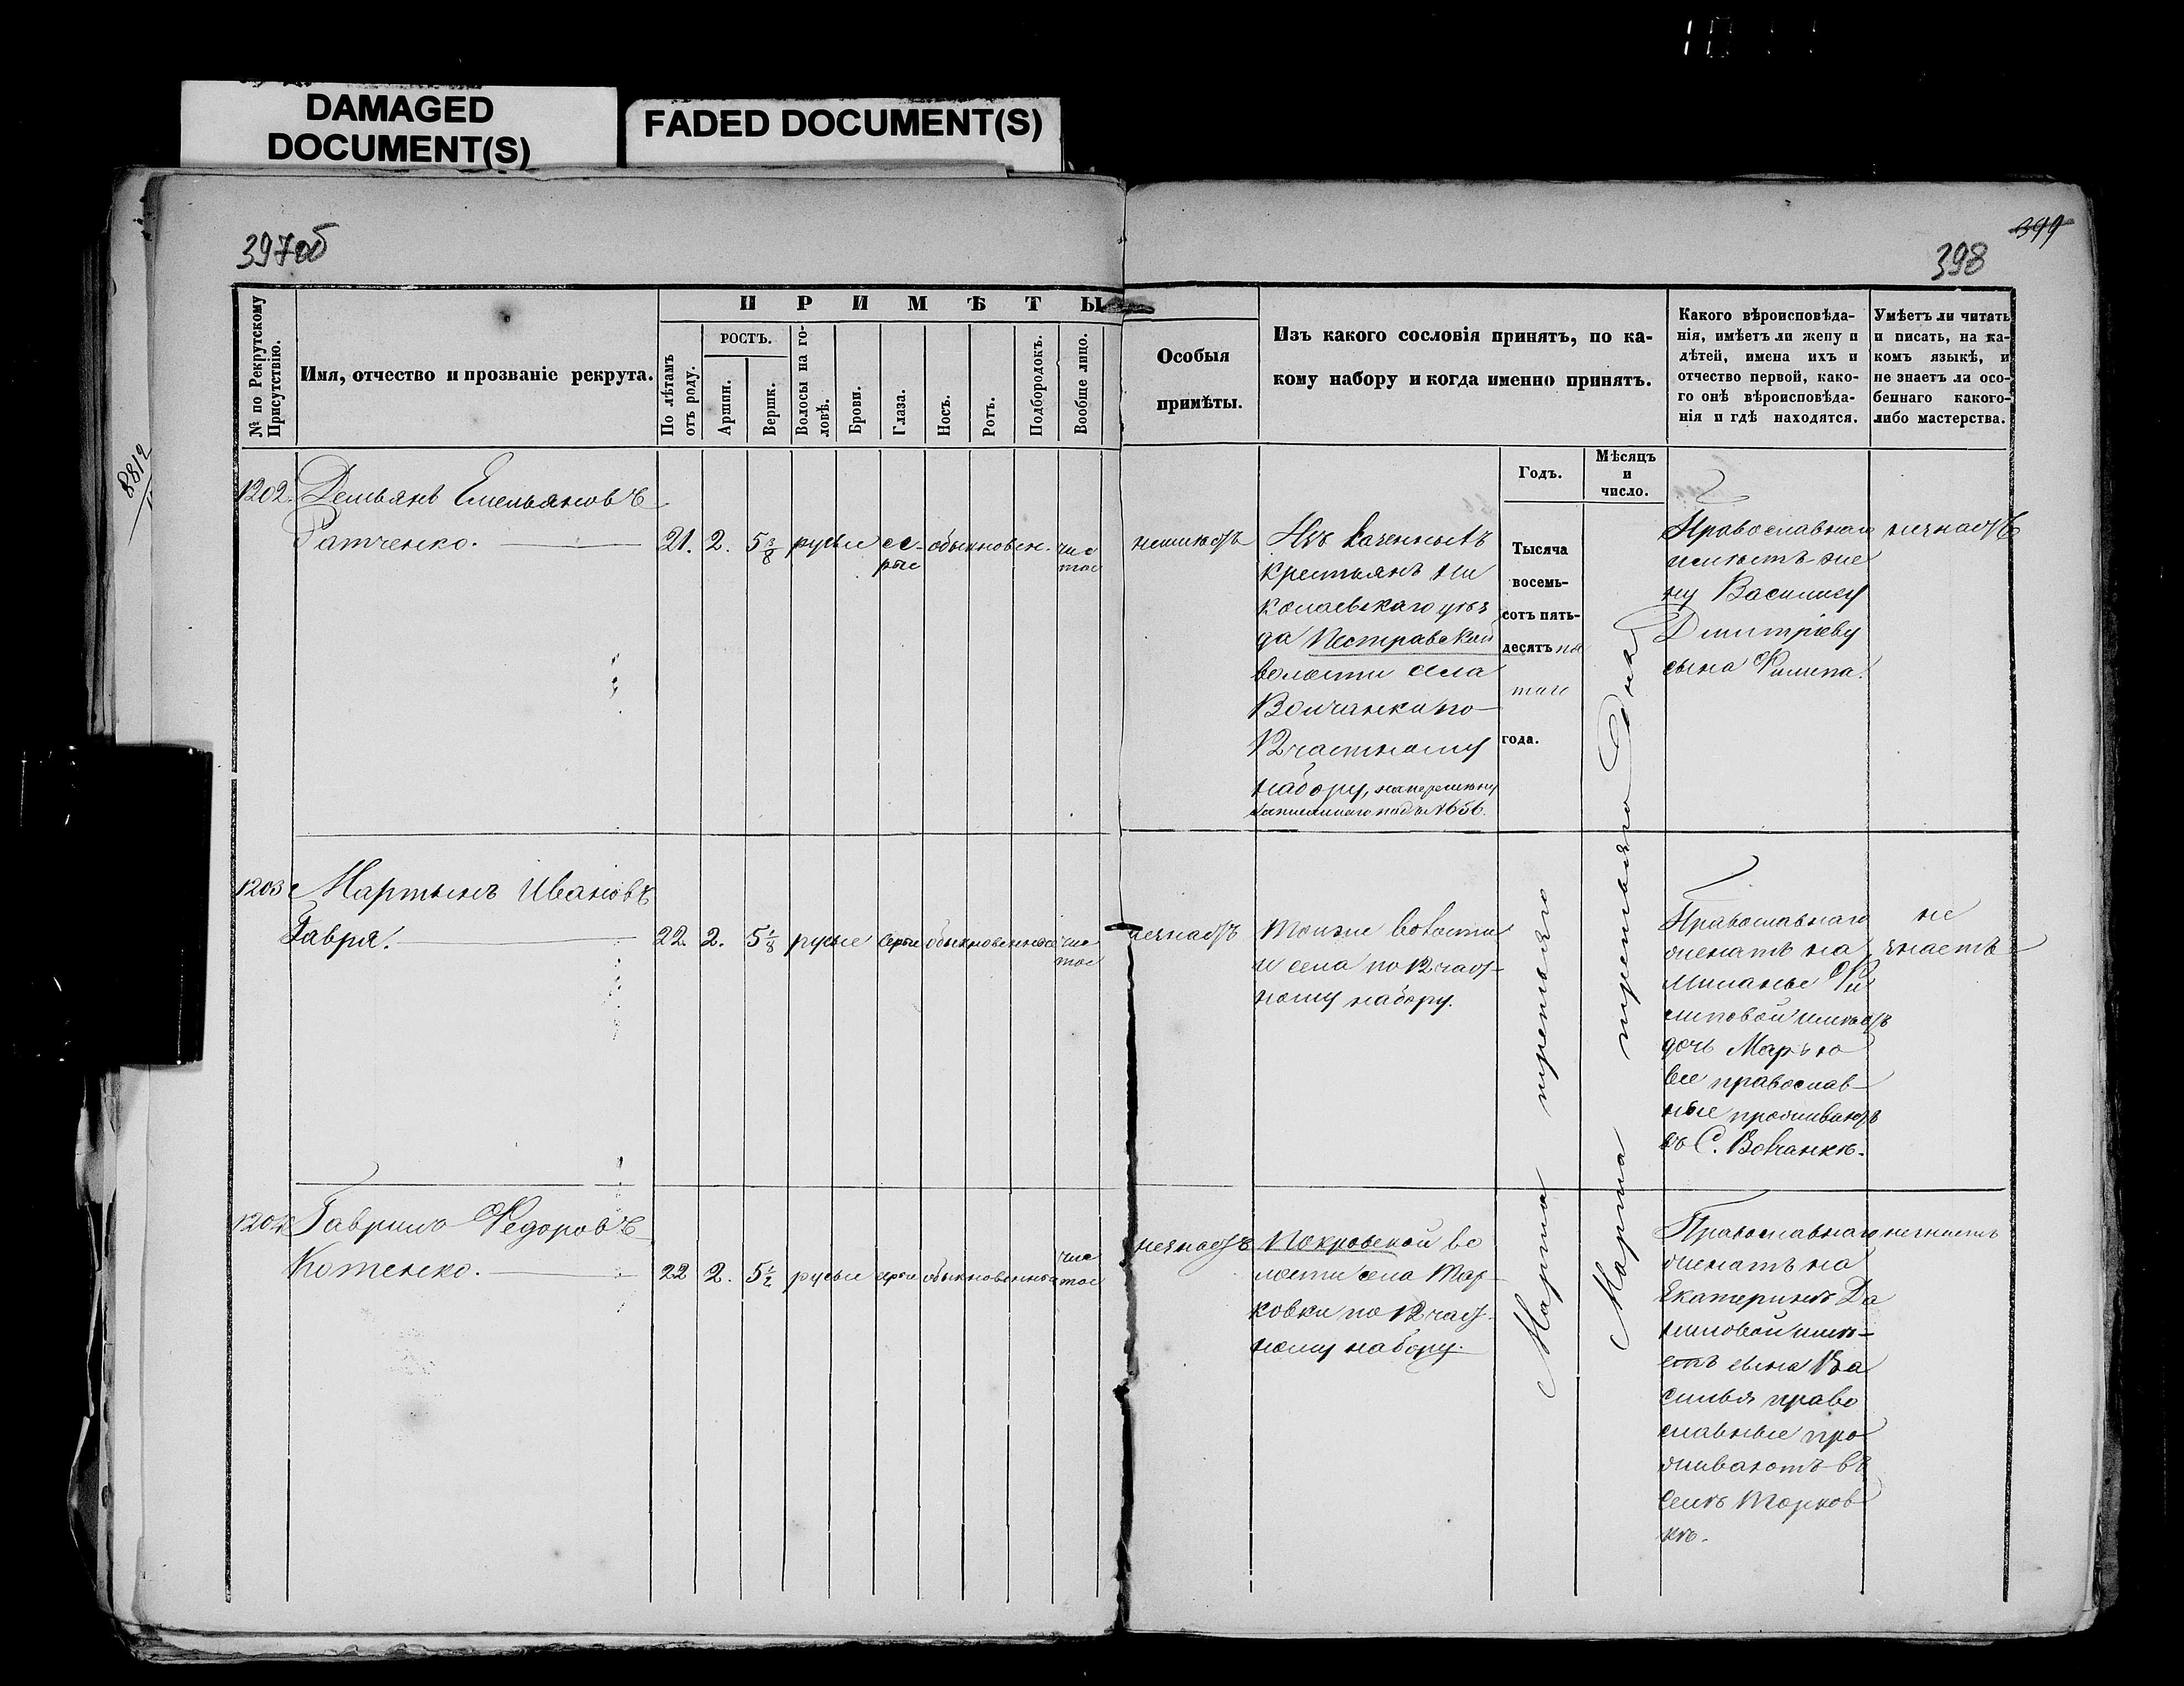 DAMAGED
DOCUMENT(S)
FADED DOCUMENT(S)
397об
398
399
8819
№ по Рекрутскому
Присутствію.
Имя, отчество и прозваніе рекрута.
П Р И М Ѣ Т Ы
По лѣтамъ
отъ роду.
РОСТЪ.
Аршин.
Вершк.
Волосы на го-
ловѣ.
Брови.
Глаза.
Носъ.
Ротъ.
Подбородокъ.
Вообще лицо.
Особыя
примѣты.
Изъ какого сословія принятъ, по ка-
кому набору и когда именно принятъ.
Годъ.
Мѣсяцъ
и
число.
Какого вѣроисповѣда-
нія, имѣетъ ли жену и
дѣтей, имена ихъ и
отчество первой, како-
го онѣ вѣроисповѣда-
нія и гдѣ находятся.
Умѣетъ ли читать
и писать, на ка-
комъ языкѣ, и
не знаетъ ли осо-
беннаго какого-
либо мастерства.
1202. Демьянъ Емельяновъ
Ратченко.
21. 2. 5 3/8 русые се-
рые
обыкновен. чис
тое
неимѣетъ
Изъ Казенныхъ
крестьянъ Ни
колаевскаго уѣз
да Пестравской
волости села
Волчанки по
12 частному
набору, на перемѣну
записаннаго подъ №656.
Тысяча
восемь-
сотъ пять-
десятъ пя
таго
года.
Марта третьяго
Марта третьяго дня
Православнаго
имѣетъ же
ну Василису
Дмитріеву
сына Филипа.
незнаетъ
1203 Мартынъ Ивановъ
Гавря.
22. 2. 5 1/8 русые серые обыкновенное чис
тое
незнаетъ
Тойже волости
и села по 12 част-
ному набору.
Православнаго
женатъ на
Миланье Фи
липовой имѣетъ
дочь Марью
все православ-
ные проживаютъ
въ С. Вовчанкѣ.
не
знаетъ
1204 Гаврило Федоровъ
Котенко.
22 2. 5 1/2 русые серые обыкновенное чис
тое
незнаетъ
Покровской во
лости села Тяг-
ковки по 12 част-
ному набору.
Православнаго
женатъ на
Екатеринѣ Да
ниловой имѣ-
етъ сына Ва
силья право
славные про
живаютъ въ
селѣ
незнаетъ